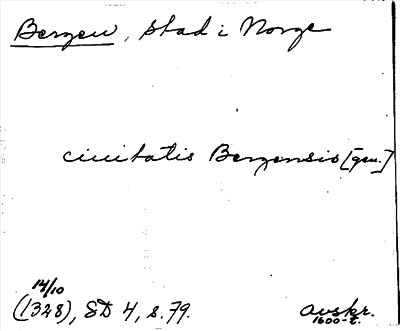 Bergen, stad i Norge
civitatis Bergensis [gen.]
14/10
(1328), SD 4, s. 79.
avskr.
1600-t.